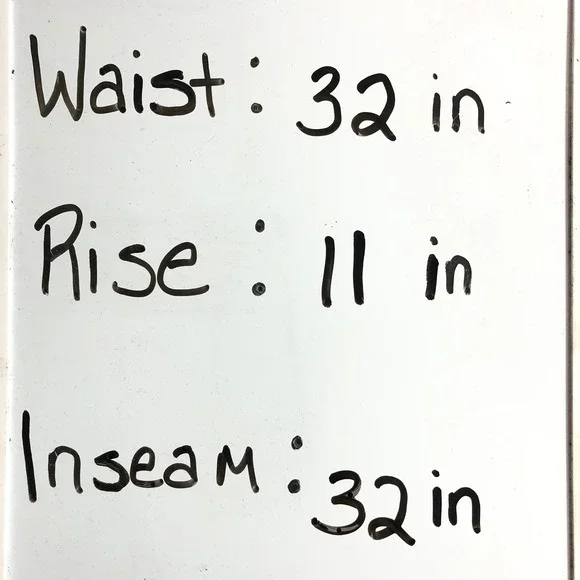 Waist: 32 in
Rise: 11 in
Inseam: 32 in